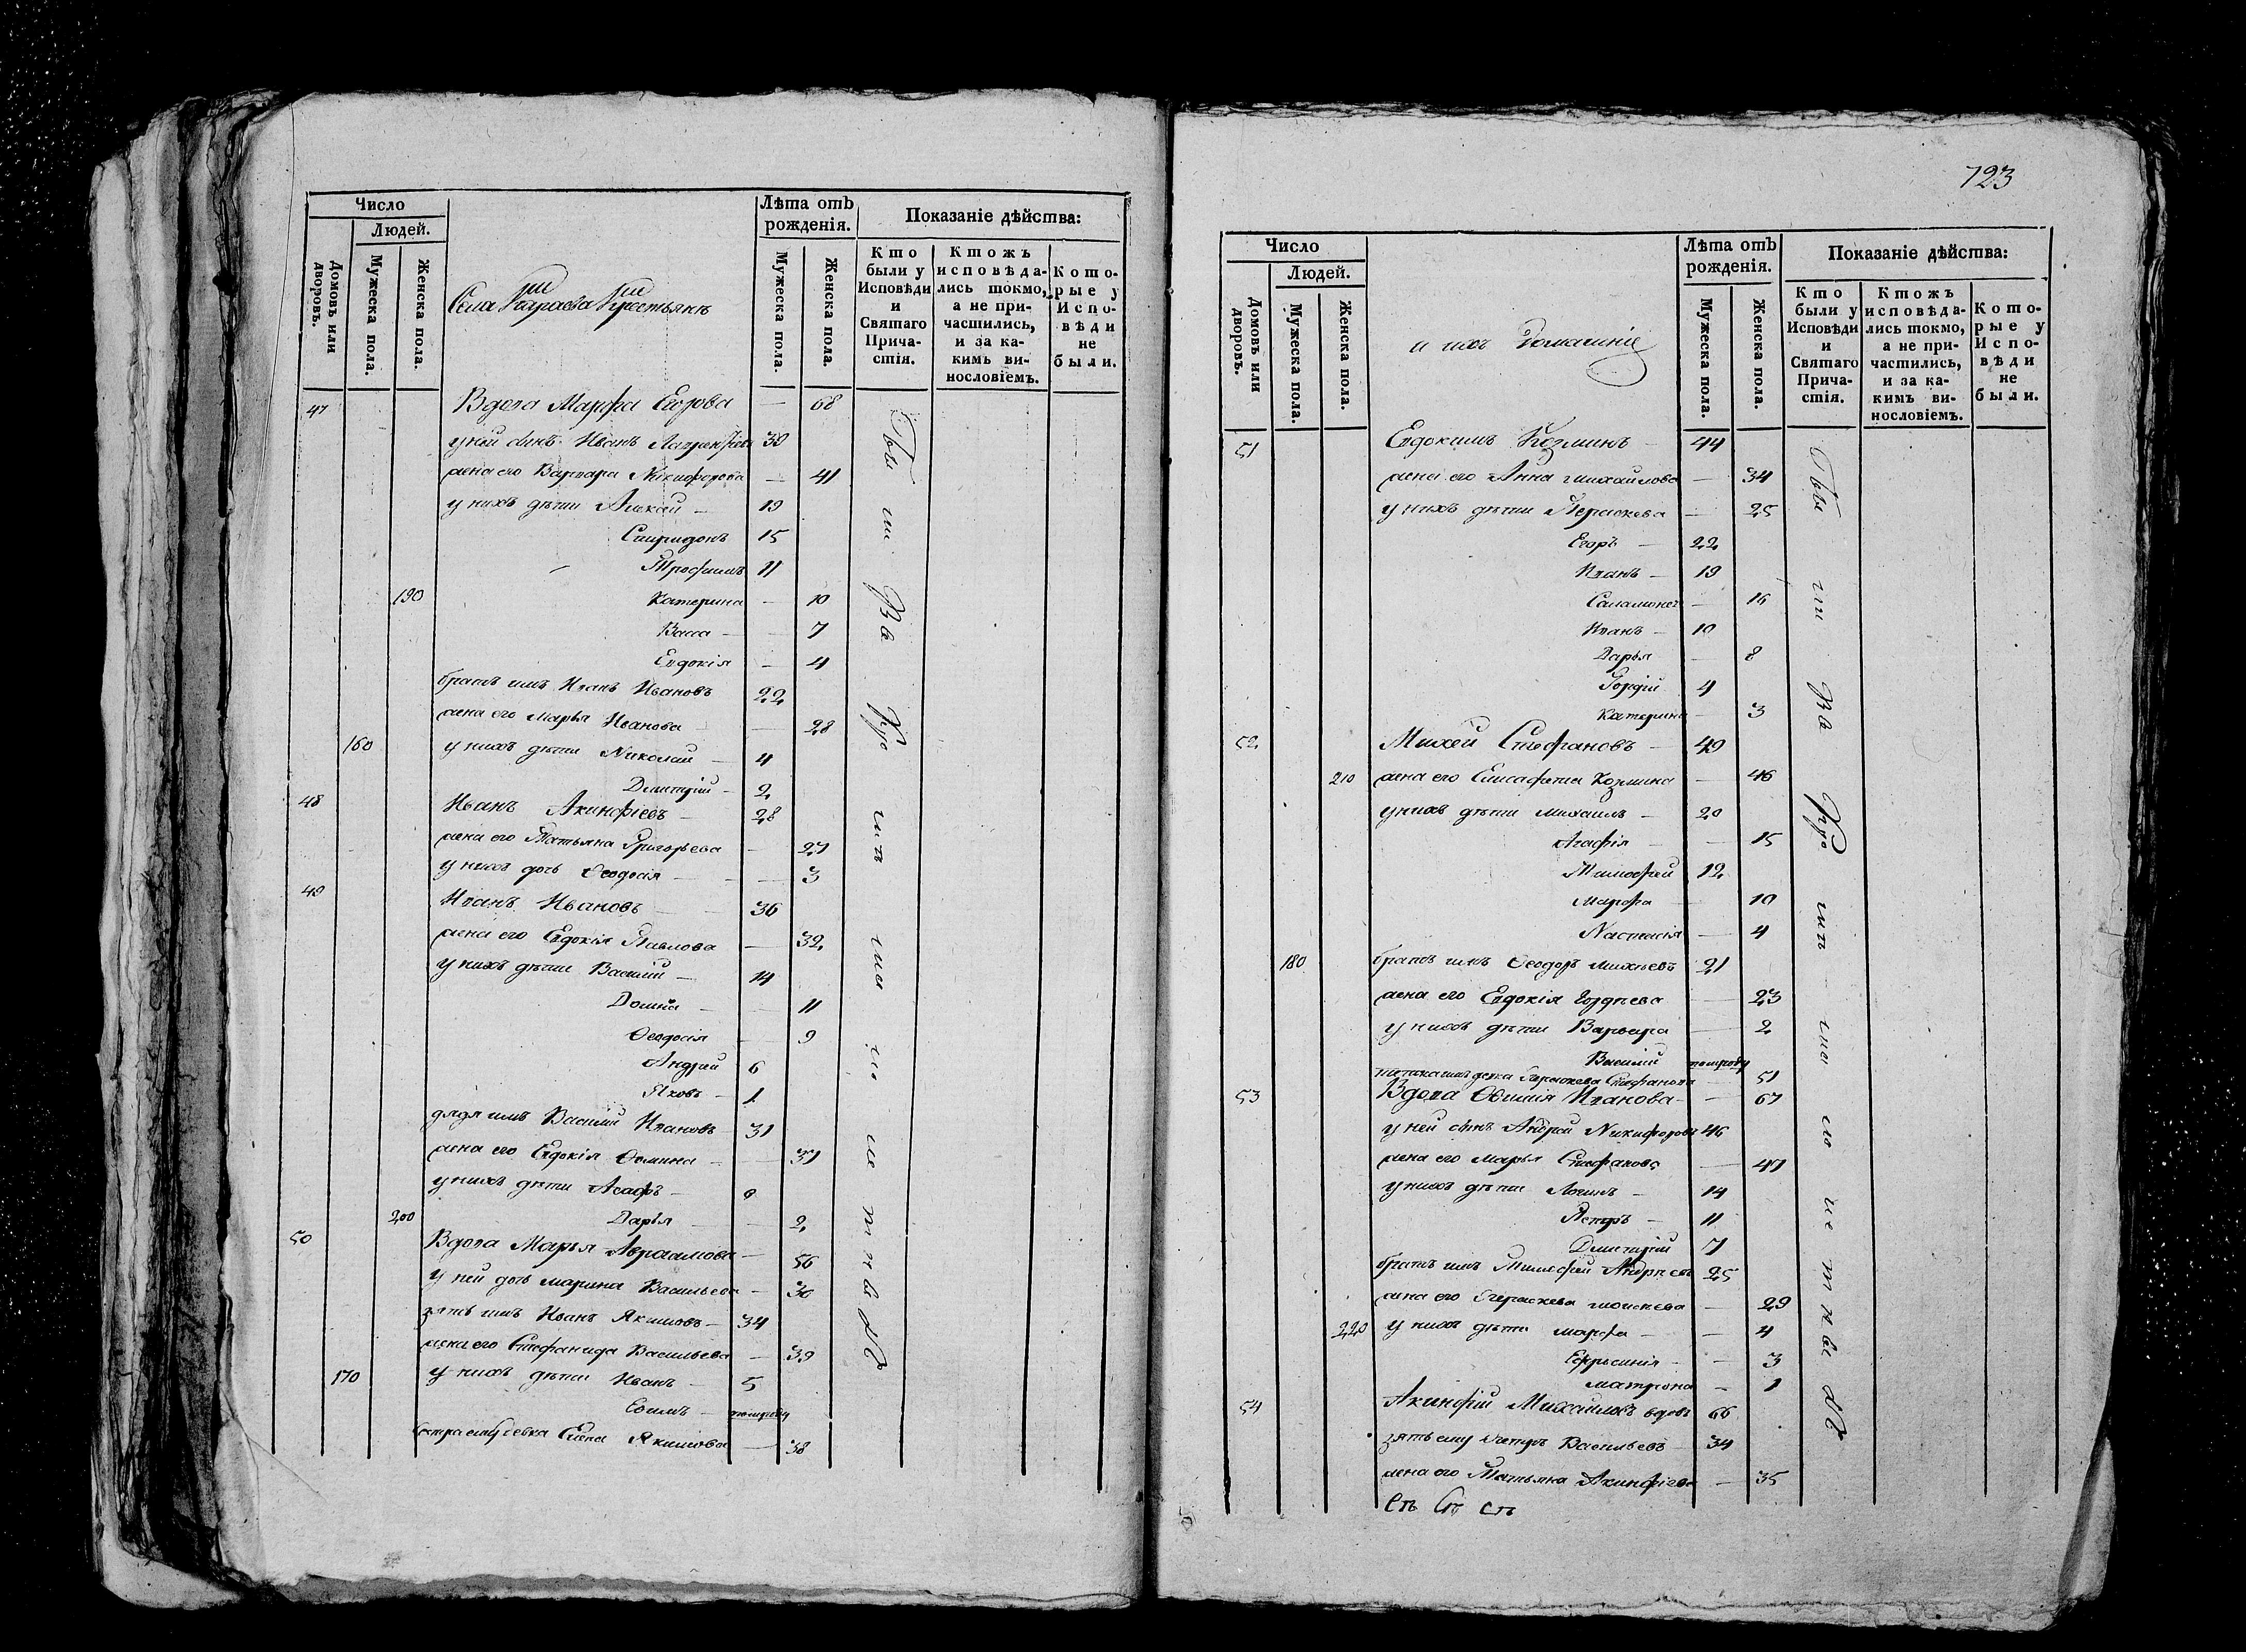 Число
Людей.
Домовъ или дворовъ.
Мужеска пола.
Женска пола.
Села Караева Крестьянъ
Лѣта отъ рожденія.
Мужеска пола.
Женска пола.
Показаніе дѣйства:
Кто были у Исповѣди и Святаго Прича-стія.
Ктожъ исповѣда-лись токмо, а не при-частились, и за ка-кимъ ви-нословіемъ.
Кото-рые у Испо-вѣди не были.
47 Вдова Марфа Егорова — 68
у ней сынъ Иванъ 39
жена его Варвара Никифорова — 41
у нихъ дѣти Алексѣй — 19
Спиридонъ 15
Трофимъ 11
190 Катерина — 10
Васса — 7
Евдокія — 4
братъ имъ Иванъ Ивановъ 22
жена его Марья Иванова — 28
160 у нихъ дѣти Николай — 4
Дмитрій — 2
48 Иванъ Акинфіевъ — 28
жена его Татьяна Григорьева — 27
у нихъ дочь Ѳеодосія — 3
49 Иванъ Ивановъ — 36
жена его Евдокія Павлова — 32
у нихъ дѣти Василій — 14
Домна — 11
Ѳеодосія — 9
Андрей 6
Яковъ — 1
дядя имъ Василій Ивановъ 31
жена его Евдокія Ѳомина — 31
у нихъ дѣти Асафъ —
200 Дарья — 2
50 Вдова Марья Авраамова — 56
у ней дочь Марина Васильева — 30
зять имъ Иванъ Якимовъ — 34
жена его Стефанида Васильева — 39
170 у нихъ дѣти Иванъ — 5
Ефимъ — полгода
сестра ему девка Елена Якимова — 38
723
Число
Людей.
Домовъ или дворовъ.
Мужеска пола.
Женска пола.
и ихъ Домашніе
Лѣта отъ рожденія.
Мужеска пола.
Женска пола.
Показаніе дѣйства:
Кто были у Исповѣди и Святаго Прича-стія.
Ктожъ исповѣда-лись токмо, а не при-частились, и за ка-кимъ ви-нословіемъ.
Кото-рые у Испо-вѣди не были.
51 Евдокимъ Козминъ — 44
жена его Анна Михайлова — 34
у нихъ дѣти Пераскева — 25
Егоръ — 22
Иванъ — 19
16
Иванъ — 10
Дарья — 8
Гордій 4
Катерина — 3
52 Михей Стефановъ — 49
210 жена его Елисафета Козмина — 46
у нихъ дѣти Михаилъ — 20
Агафія — 15
Тимофей 12
Марфа — 10
Настасія — 4
180 братъ имъ Ѳеодоръ Михѣевъ 21
жена его Евдокія Гордѣева — 23
у нихъ дѣти Варвара — 2
Василій полгода
девка Пераскева Стефанова — 51
53 Вдова Ефимія Иванова — 67
у ней сынъ Андрей Никифоровъ 46
жена его Марья Стефанова — 47
у нихъ дѣти Логинъ — 14
Петръ — 11
Дмитрій 7
братъ имъ Тимофей Андрѣевъ 25
жена его Пераскева Моисѣева — 29
220 у нихъ дѣти Марфа — 4
Ефросинія — 3
Матрона — 1
54 Акинфій Михайловъ вдовъ 66
зять ему Петръ Васильевъ — 34
жена его Татьяна Акинфіева — 35